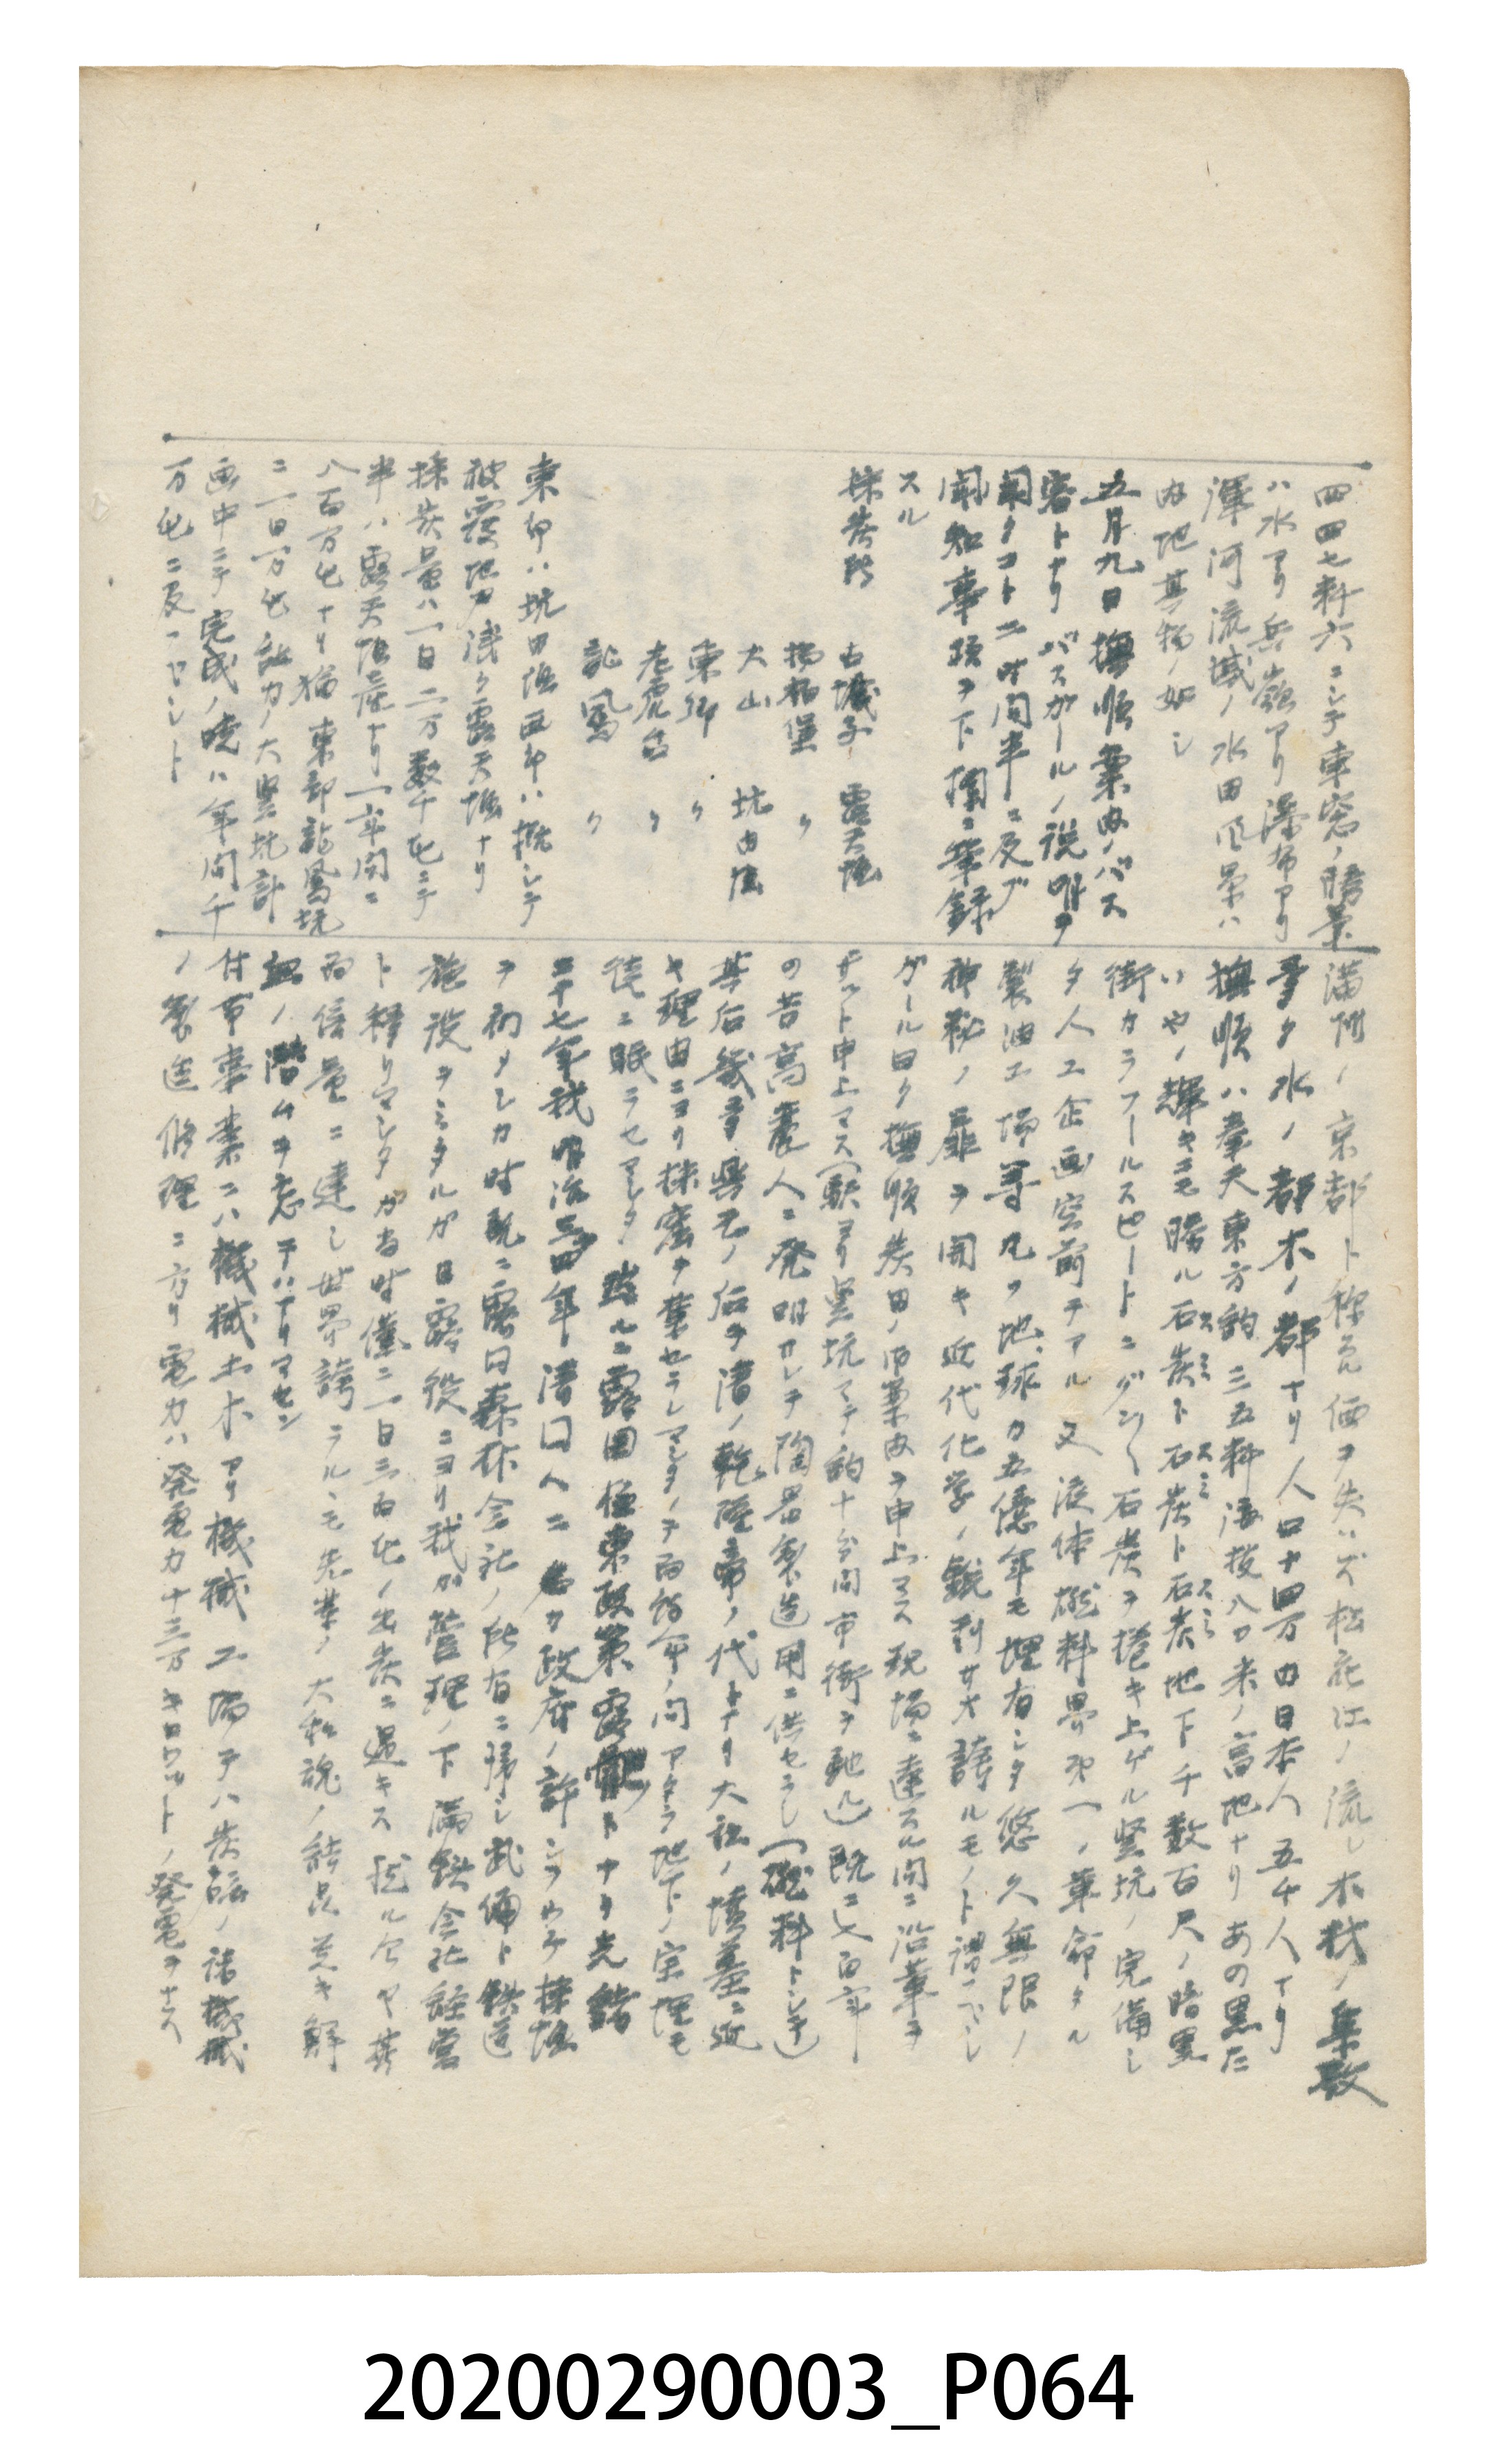 四四七料六ニシテ車窓ノ勝景
ハ水アリ兵嶺アリ瀑布アリ
渾河流域ノ水田風景ハ
内地其物ノ如シ
五月九日撫順案内ノバス
客トナリバスガールノ説明ヲ
聞クコト二時間半ニ及ブ
聞知事項ヲ下欄ニ筆録
スル
採炭所 古城子 露天掘
楊柏堡 〃
大山 坑内掘
東郷 〃
老虎台 〃
龍鳳 〃
東部ハ坑内掘西部ハ概シテ
被覆地層浅ク露天掘ナリ
採炭量ハ一日二万数千屯ニテ
半ハ露天掘産ナリ一年間ニ
八百万屯ナリ猶東部龍鳳坑
ニ一日一万屯能力ノ大竪坑計
画中ニテ完成ノ暁ハ年間千
万屯ニ及ヘントセント
満洲ノ京都ト称スル価ヲ失ハズ松花江ノ流レ木材ノ集散
多ク水ノ都木ノ都ナリ人口十四万内日本人五千人ナリ
撫順ハ奉天東方約三五料海抜八〇米ノ高地ナリあの黒だ
いやノ輝キニモ勝ル石炭ト石炭ト石炭地下千数百尺ノ暗黒
街カラフールスピードニグングン石炭ヲ捲キ上ゲル竪坑ノ完備シ
タ人工企画空前デアル又液体燃料界第一ノ革命タル
製油工場等凡ソ地球カ五億年モ埋有シタ悠久無限ノ
神秘ノ扉ヲ開キ近代化学ノ鋭利サオ誇ルモノト謂フベシ
ガール曰ク撫順炭田ノ御案内ヲ申上マス現場ニ達スル間ニ沿革ヲ
チット申上マス(駅ヨリ竪坑マデ約十分間市街ヲ馳ル)既ニ七百年
の昔高麗人ニ発明サレテ陶器製造用ニ供セラレ(燃料トシテ)
其后幾多興亡ノ后ヲ清ノ乾隆帝ノ代トナリ大祖ノ墳墓ニ近
キ理由ニヨリ採窯ヲ禁セラレマシタノデ百余年ノ間アタラ地下ノ宝埋モ
徒ニ眠ラセマシタ然ルニ露国極東政策露骨トナリ光緒
二十七年我明治三四年清国人ニ名カ政府ノ許シヲウケ採掘
ヲ初メシカ時既ニ露日森林会社ノ所有ニ帰シ武備ト鉄道
施設ヲミタルガ日露役ニヨリ我ガ管理ノ下満鉄会社経営
ト移リマシタガ当時僅ニ一日三百屯ノ出炭ニ過キス然ル今ヤ其
百倍量ニ達シ世界ニ誇ラルヽモ先輩ノ大和魂ノ結晶尊キ鮮
血ノ滲ムヲ忘テハナリマセン
付帯事業ニハ機械土木アリ機械工場デハ炭鉱ノ諸機械
ノ製造修理ニ方リ電力ハ発電力十三万キロワットノ発電ヲナス